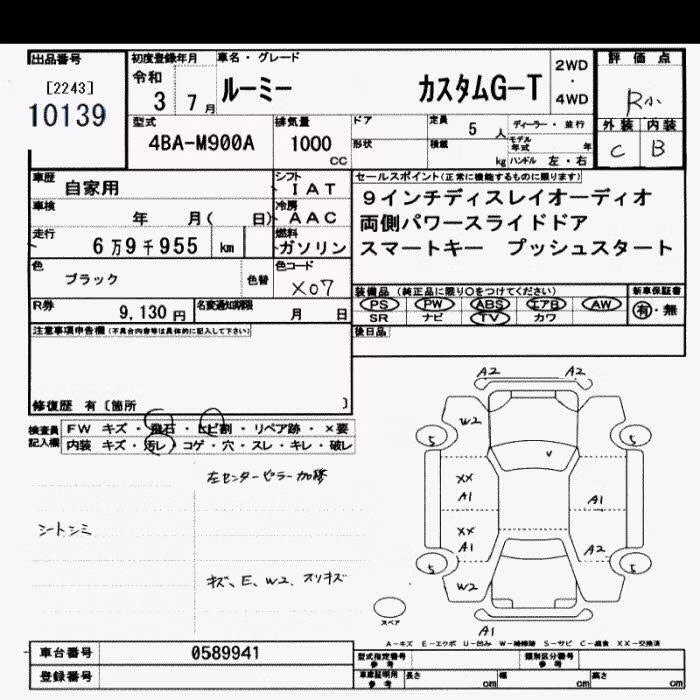 出品番号
[2243]
10139
初度登録年月
令和
3 7月
車名・グレード
ルーミー カスタムG-T
2WD
・
4WD
評価点
R小
外装 内装
C B
型式
4BA-M900A
排気量
1000
cc
ドア
形状
定員
5 人
積載
kg
ディーラー・並行
モデル年式 年
ハンドル 左・右
車歴
自家用
シフト
IAT
車検
年 月( 日)
冷房
AAC
走行
6万9千955 km
燃料
ガソリン
セールスポイント(正常に機能するものに限ります)
9インチディスレイオーディオ
両側パワースライドドア
スマートキー プッシュスタート
色
ブラック
色替
色コード
X07
装備品(純正品に限り○をつけてください)
PS PW ABS エアB AW
SR ナビ TV カワ
新車保証書
有・無
R券
9,130円
名変通知期限
月 日
後日品
注意事項申告欄(不具合内容等は具体的に記入して下さい)
修復歴 有〔箇所 〕
検査員
記入欄
FW キズ・飛石・ヒビ割・リペア跡・×要
内装 キズ・汚レ・コゲ・穴・スレ・キレ・破レ
左センターピラー加修
シートシミ
キズ、E、W2、スリキズ
A2 A2
W2
5 5
V
XX
A1 A1
XX
A1 A2
5 5
W2
スペア
A1
A-キズ E-エクボ U-凹み W-補修跡 S-サビ C-腐食 XX-交換済
車台番号 0589941
登録番号
型式指定番号
参考
類別区分番号
参考
車庫証明用
参考
長さ cm
幅 cm
高さ cm